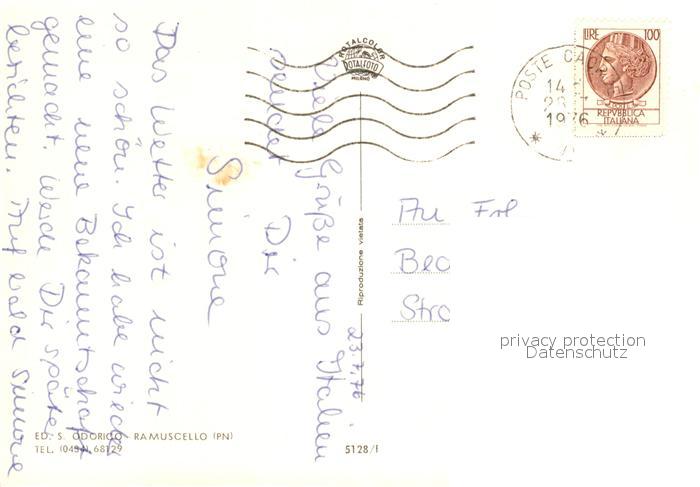 Viele Grüße aus Italien
sendet Dir
Simone
Das Wetter ist nicht
so schön. Ich habe wieder
eine neue Bekanntschaft
gemacht. Werde Dir später
berichten. Auf bald Simone
23.7.76
ROTALCOLOR
ROTALFOTO
MILANO
Riproduzione vietata
LIRE 100
REPVBBLICA
ITALIANA
POSTE
14
1976
An Frl
privacy protection
Datenschutz
ED. S. ODORICO - RAMUSCELLO (PN)
TEL. (0434) 68129
5128/F